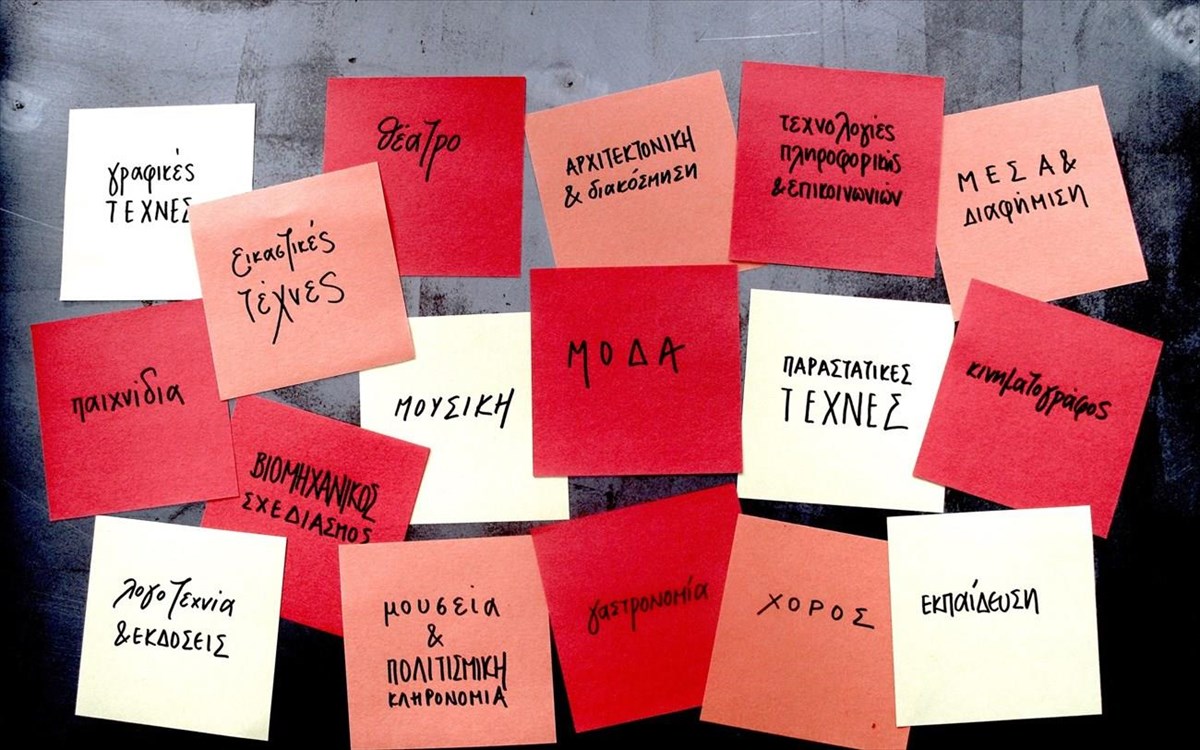 γραφικές
ΤΕΧΝΕΣ
θέατρο
ΑΡΧΙΤΕΚΤΟΝΙΚΗ
& διακόσμηση
τεχνολογίες
πληροφορικής
& ΕΠΙΚΟΙΝΩΝΙών
ΜΕΣΑ &
ΔΙΑΦήΜΙΣΗ
εικαστικές
τέχνες
παιχνίδια
ΜΟΥΣΙΚΗ
ΜΟΔΑ
ΠΑΡΑΣΤΑΤΙΚΕΣ
ΤΕΧΝΕΣ
κινηματογράφος
ΒΙΟΜΗΧΑΝΙΚΟΣ
ΣΧΕΔΙΑΣΜΟΣ
λογοτεχνία
& ΕΚΔΟΣΕΙΣ
μουσεία
&
ΠΟΛΙΤΙΣΜΙΚΗ
ΚΛΗΡΟΝΟΜΙΑ
γαστρονομία
ΧΟΡΟΣ
ΕΚΠΑίΔΕΥΣΗ